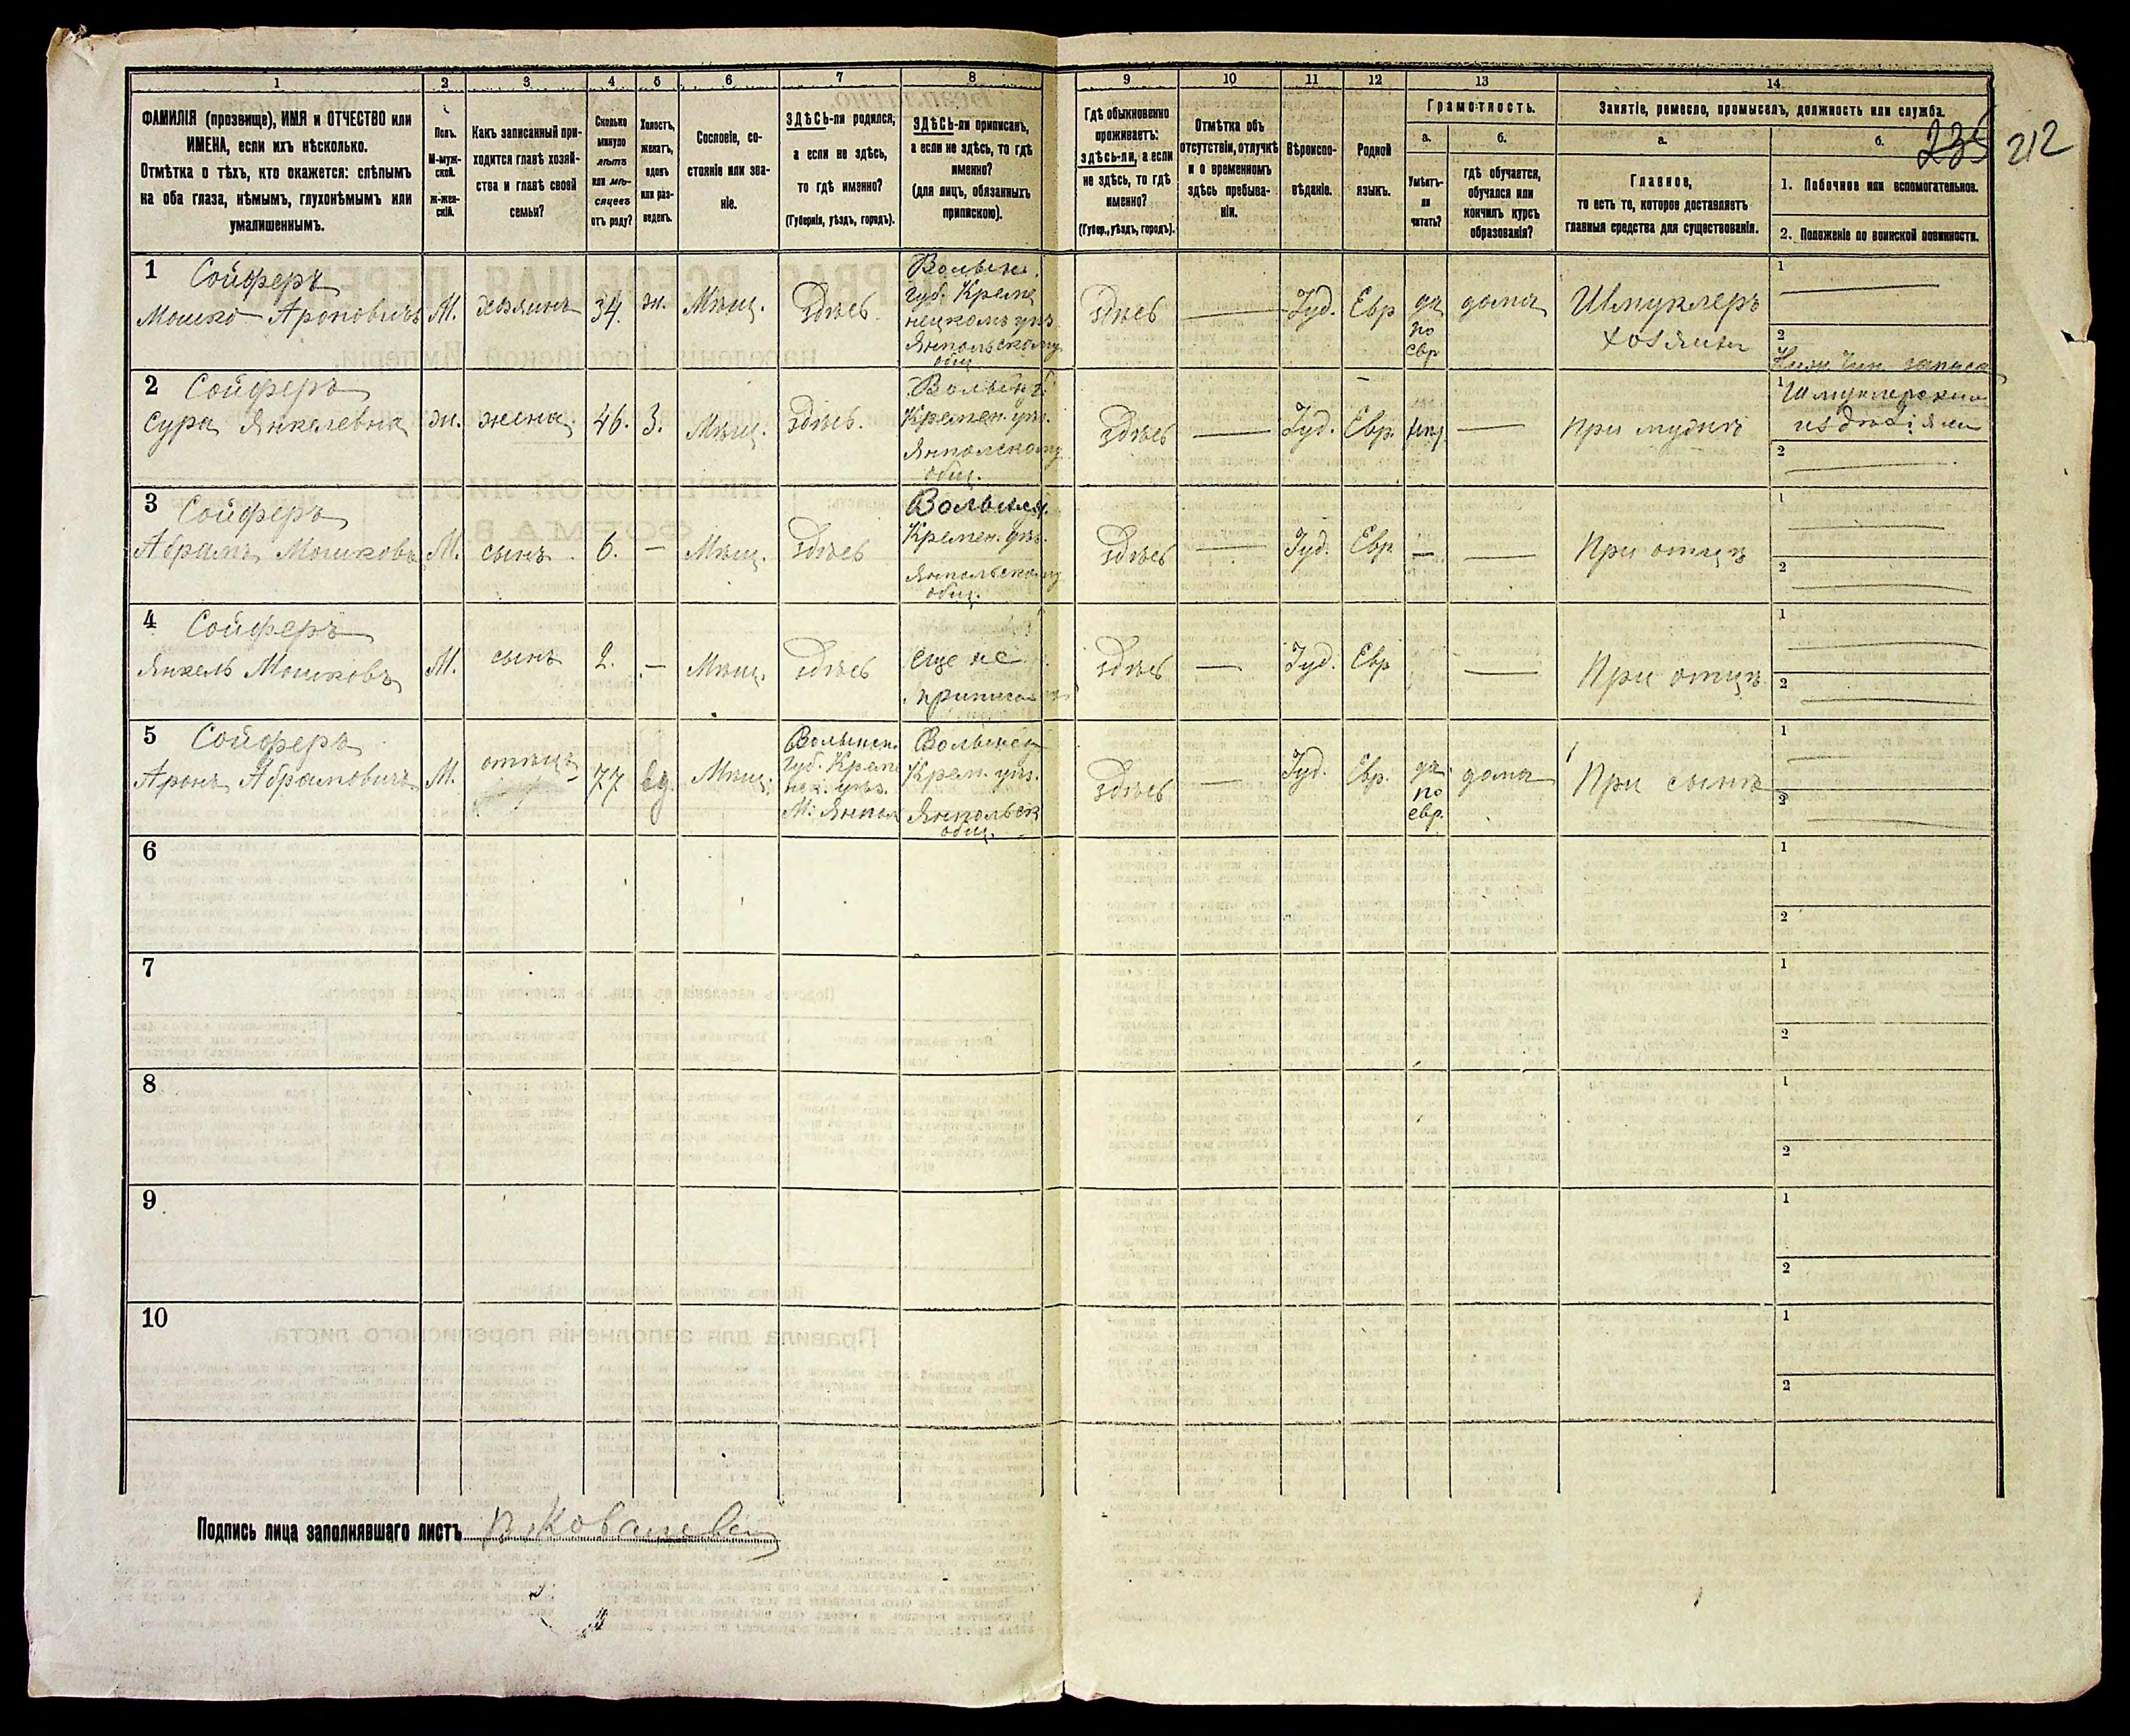 1
2
3
4
5
6
7
8
9
10
11
12
13
14
ФАМИЛІЯ (прозвище), ИМЯ и ОТЧЕСТВО или
ИМЕНА, если ихъ нѣсколько.
Отмѣтка о тѣхъ, кто окажется: слѣпымъ
на оба глаза, нѣмымъ, глухонѣмымъ или
умалишеннымъ.
Полъ.
М-муж-
ской.
ж-жен-
скій.
Какъ записанный при-
ходится главѣ хозяй-
ства и главѣ своей
семьи?
Сколько
минуло
лѣтъ
или мѣ-
сяцевъ
отъ роду?
Холостъ,
женатъ,
вдовъ
или раз-
веденъ.
Сословіе, со-
стояніе или зва-
ніе.
ЗДѢСЬ-ли родился,
а если не здѣсь,
то гдѣ именно?
(Губернія, уѣздъ, городъ).
ЗДѢСЬ-ли приписанъ,
а если не здѣсь, то гдѣ
именно?
(для лицъ, обязанныхъ
припискою).
Гдѣ обыкновенно
проживаетъ:
здѣсь-ли, а если
не здѣсь, то гдѣ
именно?
(Губер., уѣздъ, городъ).
Отмѣтка объ
отсутствіи, отлучкѣ
и о временномъ
здѣсь пребыва-
ніи.
Вѣроиспо-
вѣданіе.
Родной
языкъ.
Грамотность.
а.
Умѣетъ-
ли
читать?
б.
гдѣ обучается,
обучался или
кончилъ курсъ
образованія?
Занятіе, ремесло, промыселъ, должность или служба.
а.
Главное,
то есть то, которое доставляетъ
главныя средства для существованія.
б.
1. Побочное или вспомогательное.
2. Положеніе по воинской повинности.
235 212
1 Сойферъ
Мошко Ароновичъ
М.
хозяинъ
34.
ж.
Мѣщ.
здѣсь
Волынс.
губ. Креме
нецкомъ уѣз.
Ямпольскому
общ.
здѣсь
Іуд.
Евр
да
по
евр
дома
Шмуклеръ
хозяинъ
1
2
Ниж. чин. запаса
2 Сойферъ
Сура Янкелевна
ж.
жена
46.
З.
Мѣщ.
здѣсь.
Кремен. уѣз.
Ямполскому
общ.
здѣсь
Іуд.
Евр.
При мужѣ
1
издѣлія
2
3 Сойферъ
Абрамъ Мошковъ
М.
сынъ
6.
—
Мѣщ.
здѣсь
Кремен. уѣз.
Ямпольскому
общ.
здѣсь
Іуд.
Евр.
—
При отцѣ
1
2
4 Сойферъ
Янкель Мошковъ
М.
сынъ
2.
—
Мѣщ.
здѣсь
еще не
здѣсь
Іуд.
Евр
При отцѣ
1
2
5 Сойферъ
Аронъ Абрамовичъ
М.
отецъ
77
вд.
Мѣщ.
Волынск.
губ. Креме
нец. уѣз.
М. Ямпол
Волынск
Крем. уѣз.
Ямпольск
общ.
здѣсь
Іуд.
Евр.
да
по
евр.
дома
При сынѣ
1
2
6
1
2
7
1
2
8
1
2
9
1
2
10
1
2
Подпись лица заполнявшаго листъ